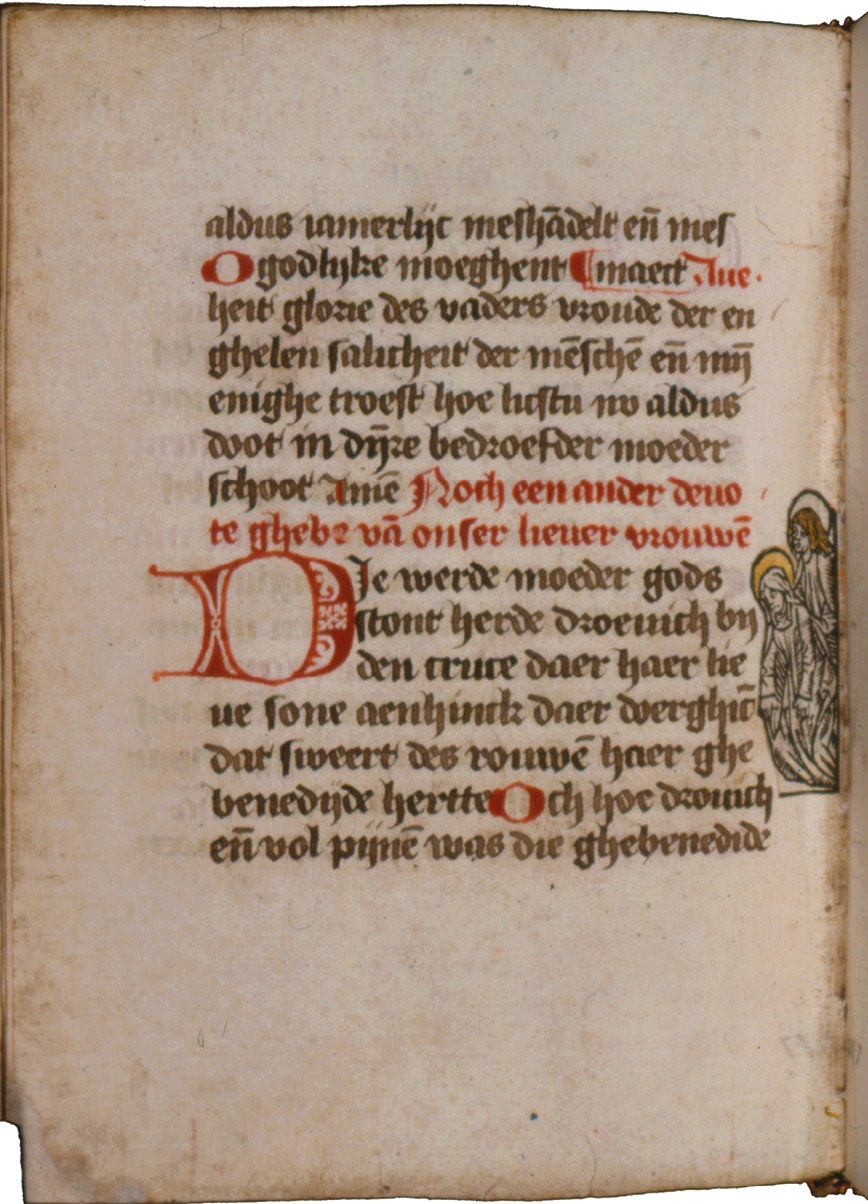 aldus iamerlijc meshādelt en̄ mes
O godlijke moeghent ¶ maect Aue.
heit glorie des vaders vroude der en
ghelen salicheit der mēschē en̄ mijn
enighe troest hoe lichstu nv aldus
doot in dijnre bedroefder moeder
schoot Amē Noch een ander deuo
te ghebe vā onser lieuer vrouwē
DIe werde moeder gods
stont herde droeuich bij
den cruce daer haer lie
ue sone aenhinck daer doerghīc
dat sweert des rouwē haer ghe
benedijde hertte Och hoe drouich
en̄ vol pijnē was die ghebenedide